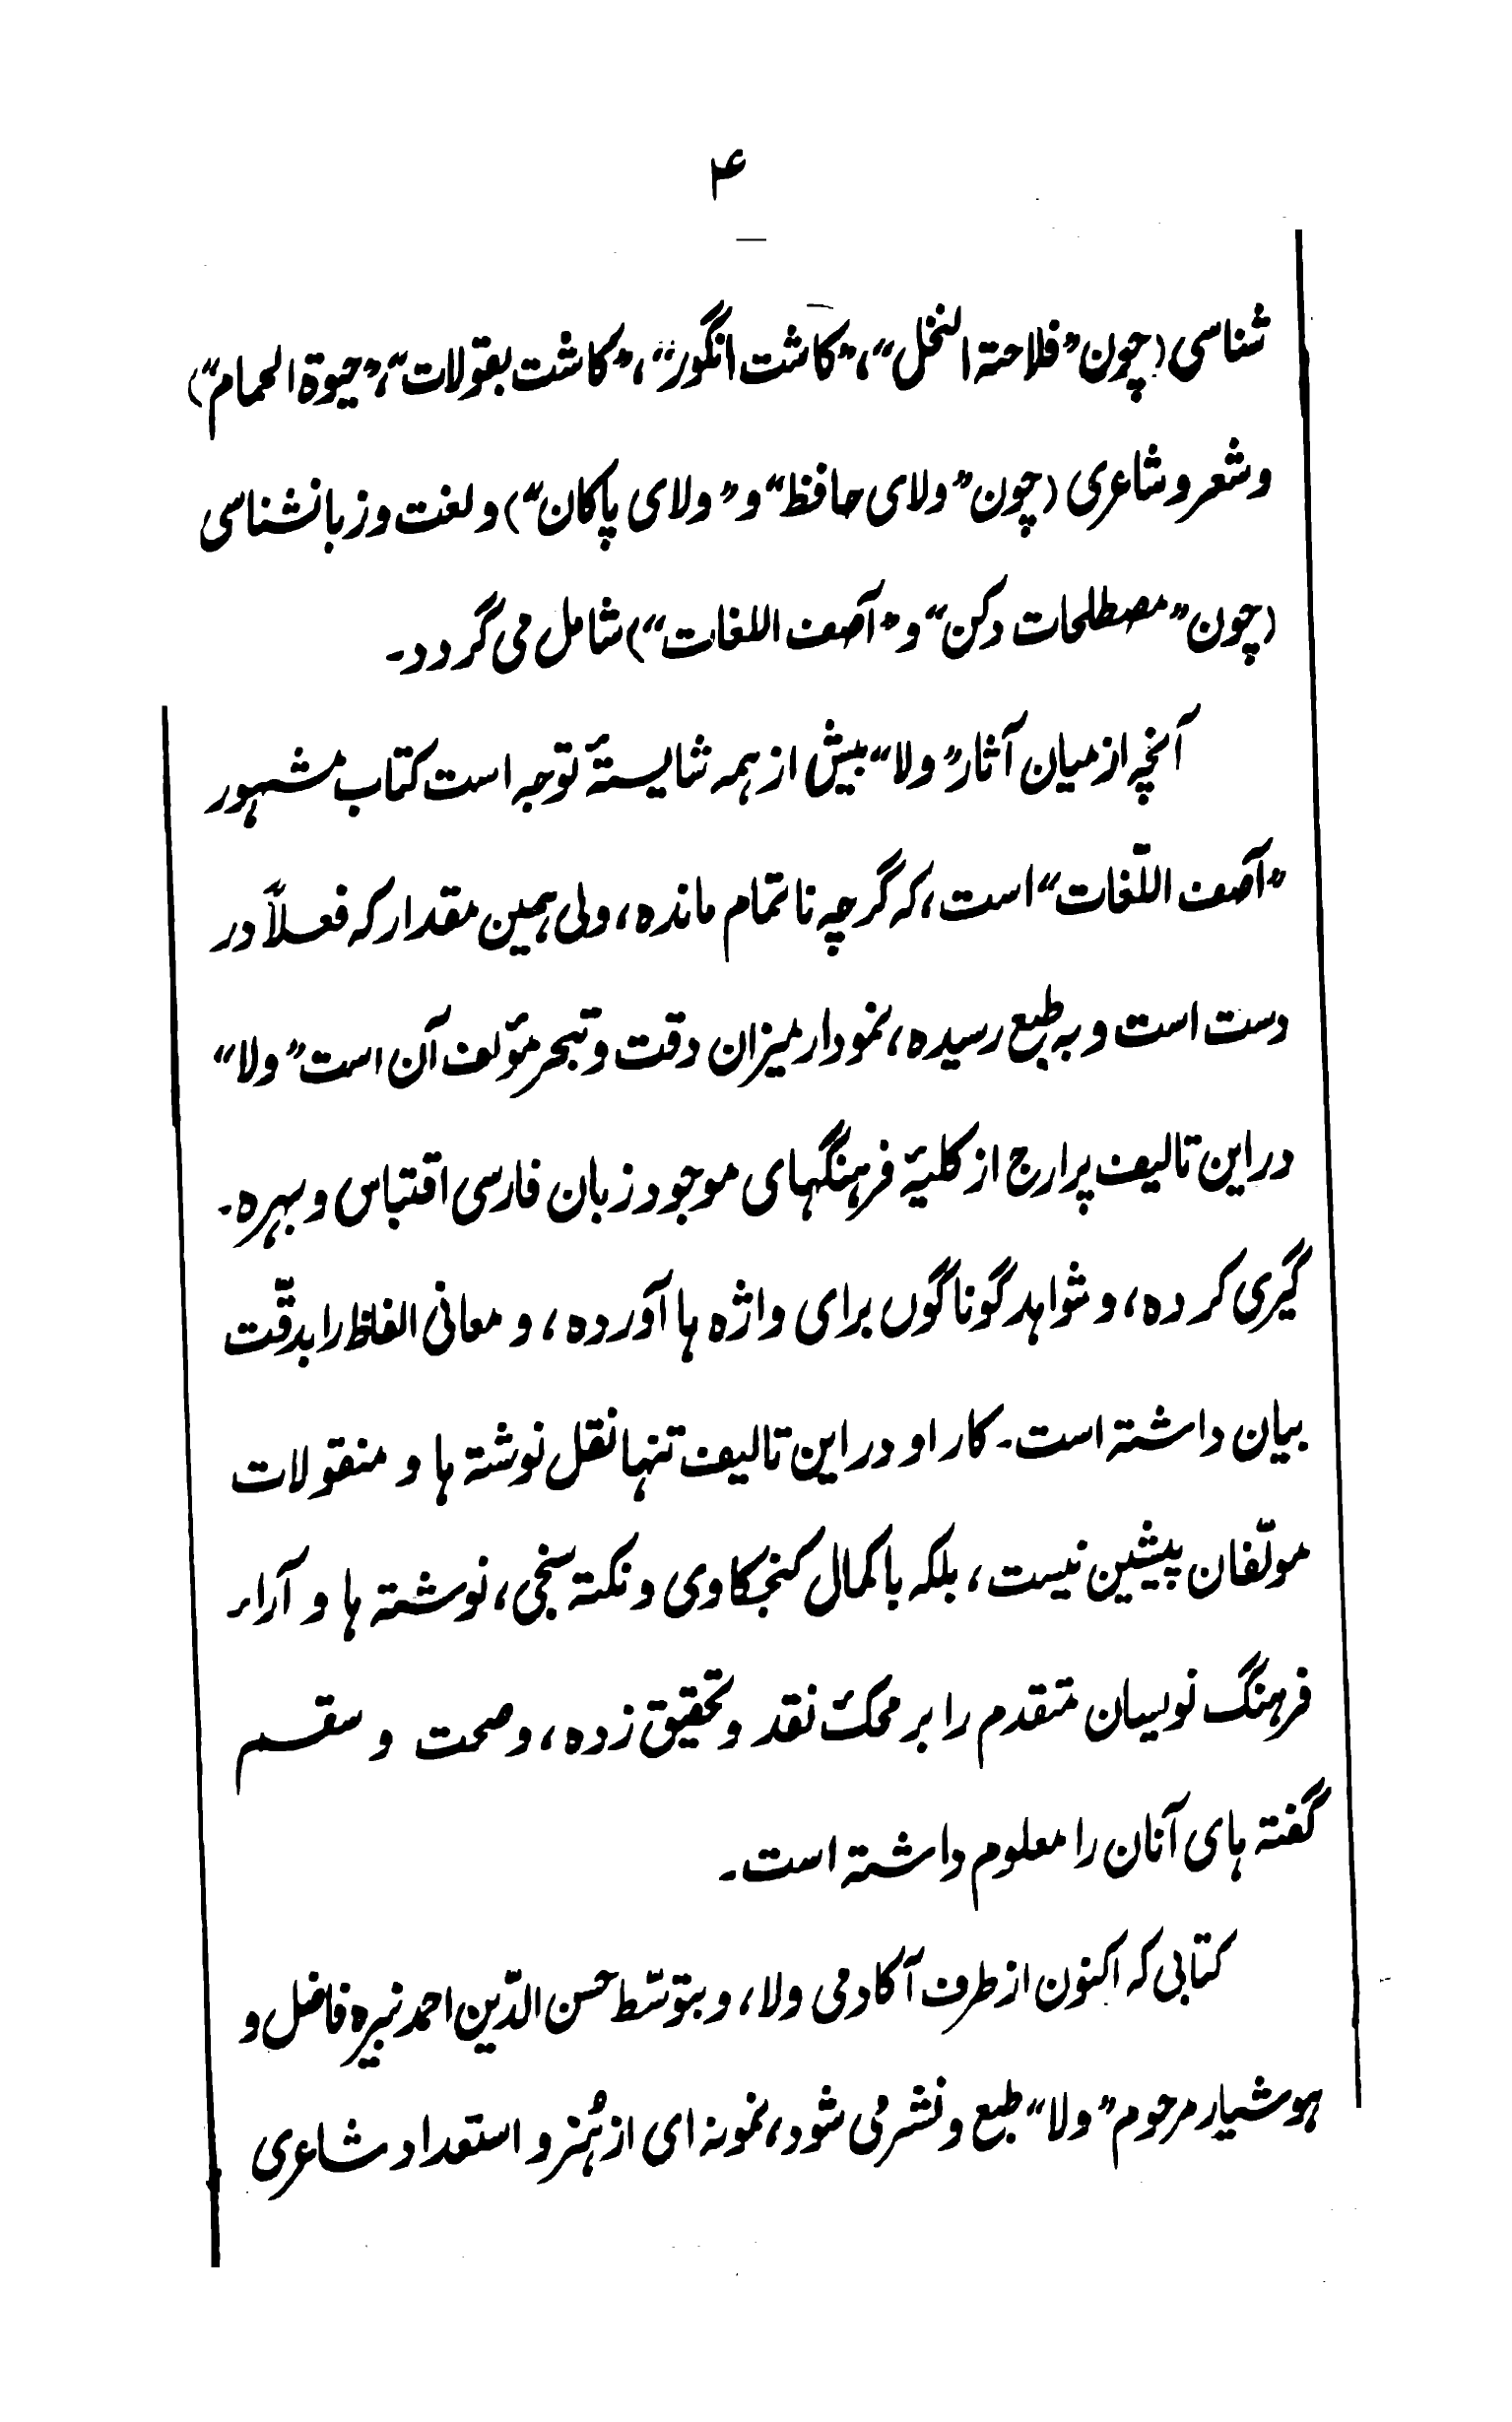 ۴
شناسی (چون ”فلاحتہ النخل“، ”کاشت انگور“، ”کاشت بقولات“، ”حیوۃ الحمام“)
وشعر و شاعری (چون ”ولای حافظ“ و ”ولای پاکان“) و لغت و زبانشناسی
(چون ”مصطلحات دکن“ و ”آصف اللغات“) شامل می گردد۔
آنچہ از میان آثار ”ولا“ بیش از ہمہ شایستۂ توجہ است کتاب مشہور
”آصف اللّغات“ است، کہ گرچہ ناتمام ماندہ، ولی ہمین مقدار کہ فعلاً در
دست است و بہ طبع رسیدہ، نمودار میزان دقت و تبحر مؤلف آن است ”ولا“
در این تالیف پرارج از کلیۂ فرہنگہای موجود زبان فارسی اقتباس و بہرہ۔
گیری کردہ، و شواہد گوناگوں برای واژہ ہا آوردہ، و معانی الفاظ را بدقّت
بیان داشتہ است۔ کار او در این تالیف تنہا نقل نوشتہ ہا و منقولات
مولّفان پیشین نیست، بلکہ باکمال کنجکاوی و نکتہ سنجی، نوشتہ ہا و آراء
فرہنگ نویسان متقدم را بر محکّ نقد و تحقیق زدہ، وصحت و سقم
گفتہ ہای آنان را معلوم داشتہ است۔
کتابی کہ اکنون از طرف آکادمی ولا، و بتوسّط حسن الدّین احمد نبیرہ فاضل و
ہوشیار مرحوم ”ولا“ طبع و نشر می شود، نمونہ ای از ہُنر و استعداد شاعری